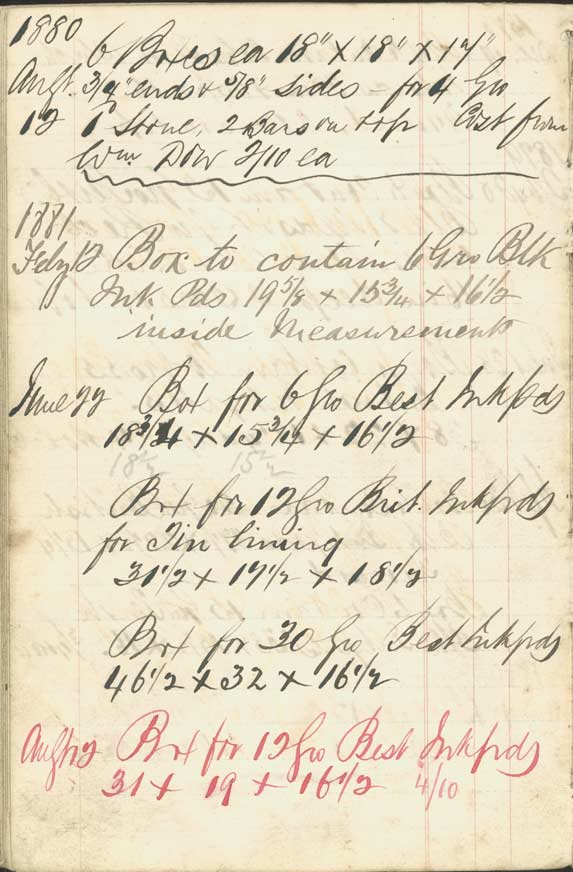 1880
6 Boxes ea 18" x 18" x 17"
Augt. 3/4" ends & 5/8" sides - for 4 Gro
12 1 Stone, 2 Bars on top Cost from
Wm Dow 2/10 ea
1881
Feby 12 Box to contain 6 Gro Blk
Ink Pds 19 5/8 x 15 3/4 x 16 1/2
inside Measurements
June 22 Box for 6 Gro Best Inkpds
18 3/4 x 15 3/4 x 16 1/2
18 1/2 15 1/2
Box for 12 Gro Brit. Inkpds
for Tin lining
31 1/2 x 17 1/2 x 18 1/2
Box for 30 Gro Best Inkpds
46 1/2 x 32 x 16 1/2
Augt 12 Box for 12 Gro Best Inkpds
31 x 19 x 16 1/2 4/10